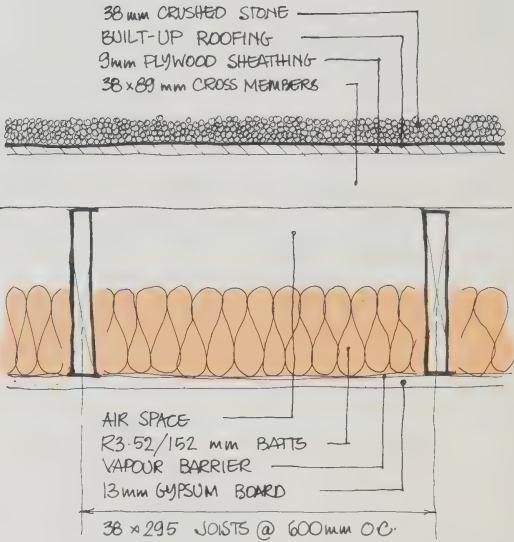 38mm CRUSHED STONE
BUILT-UP ROOFING
9mm PLYWOOD SHEATHING
38×89 mm CROSS MEMBERS
AIR SPACE
R3.52/152 mm BATTS
VAPOUR BARRIER
13mm GYPSUM BOARD
38×295 JOISTS @ 600mm O.C.